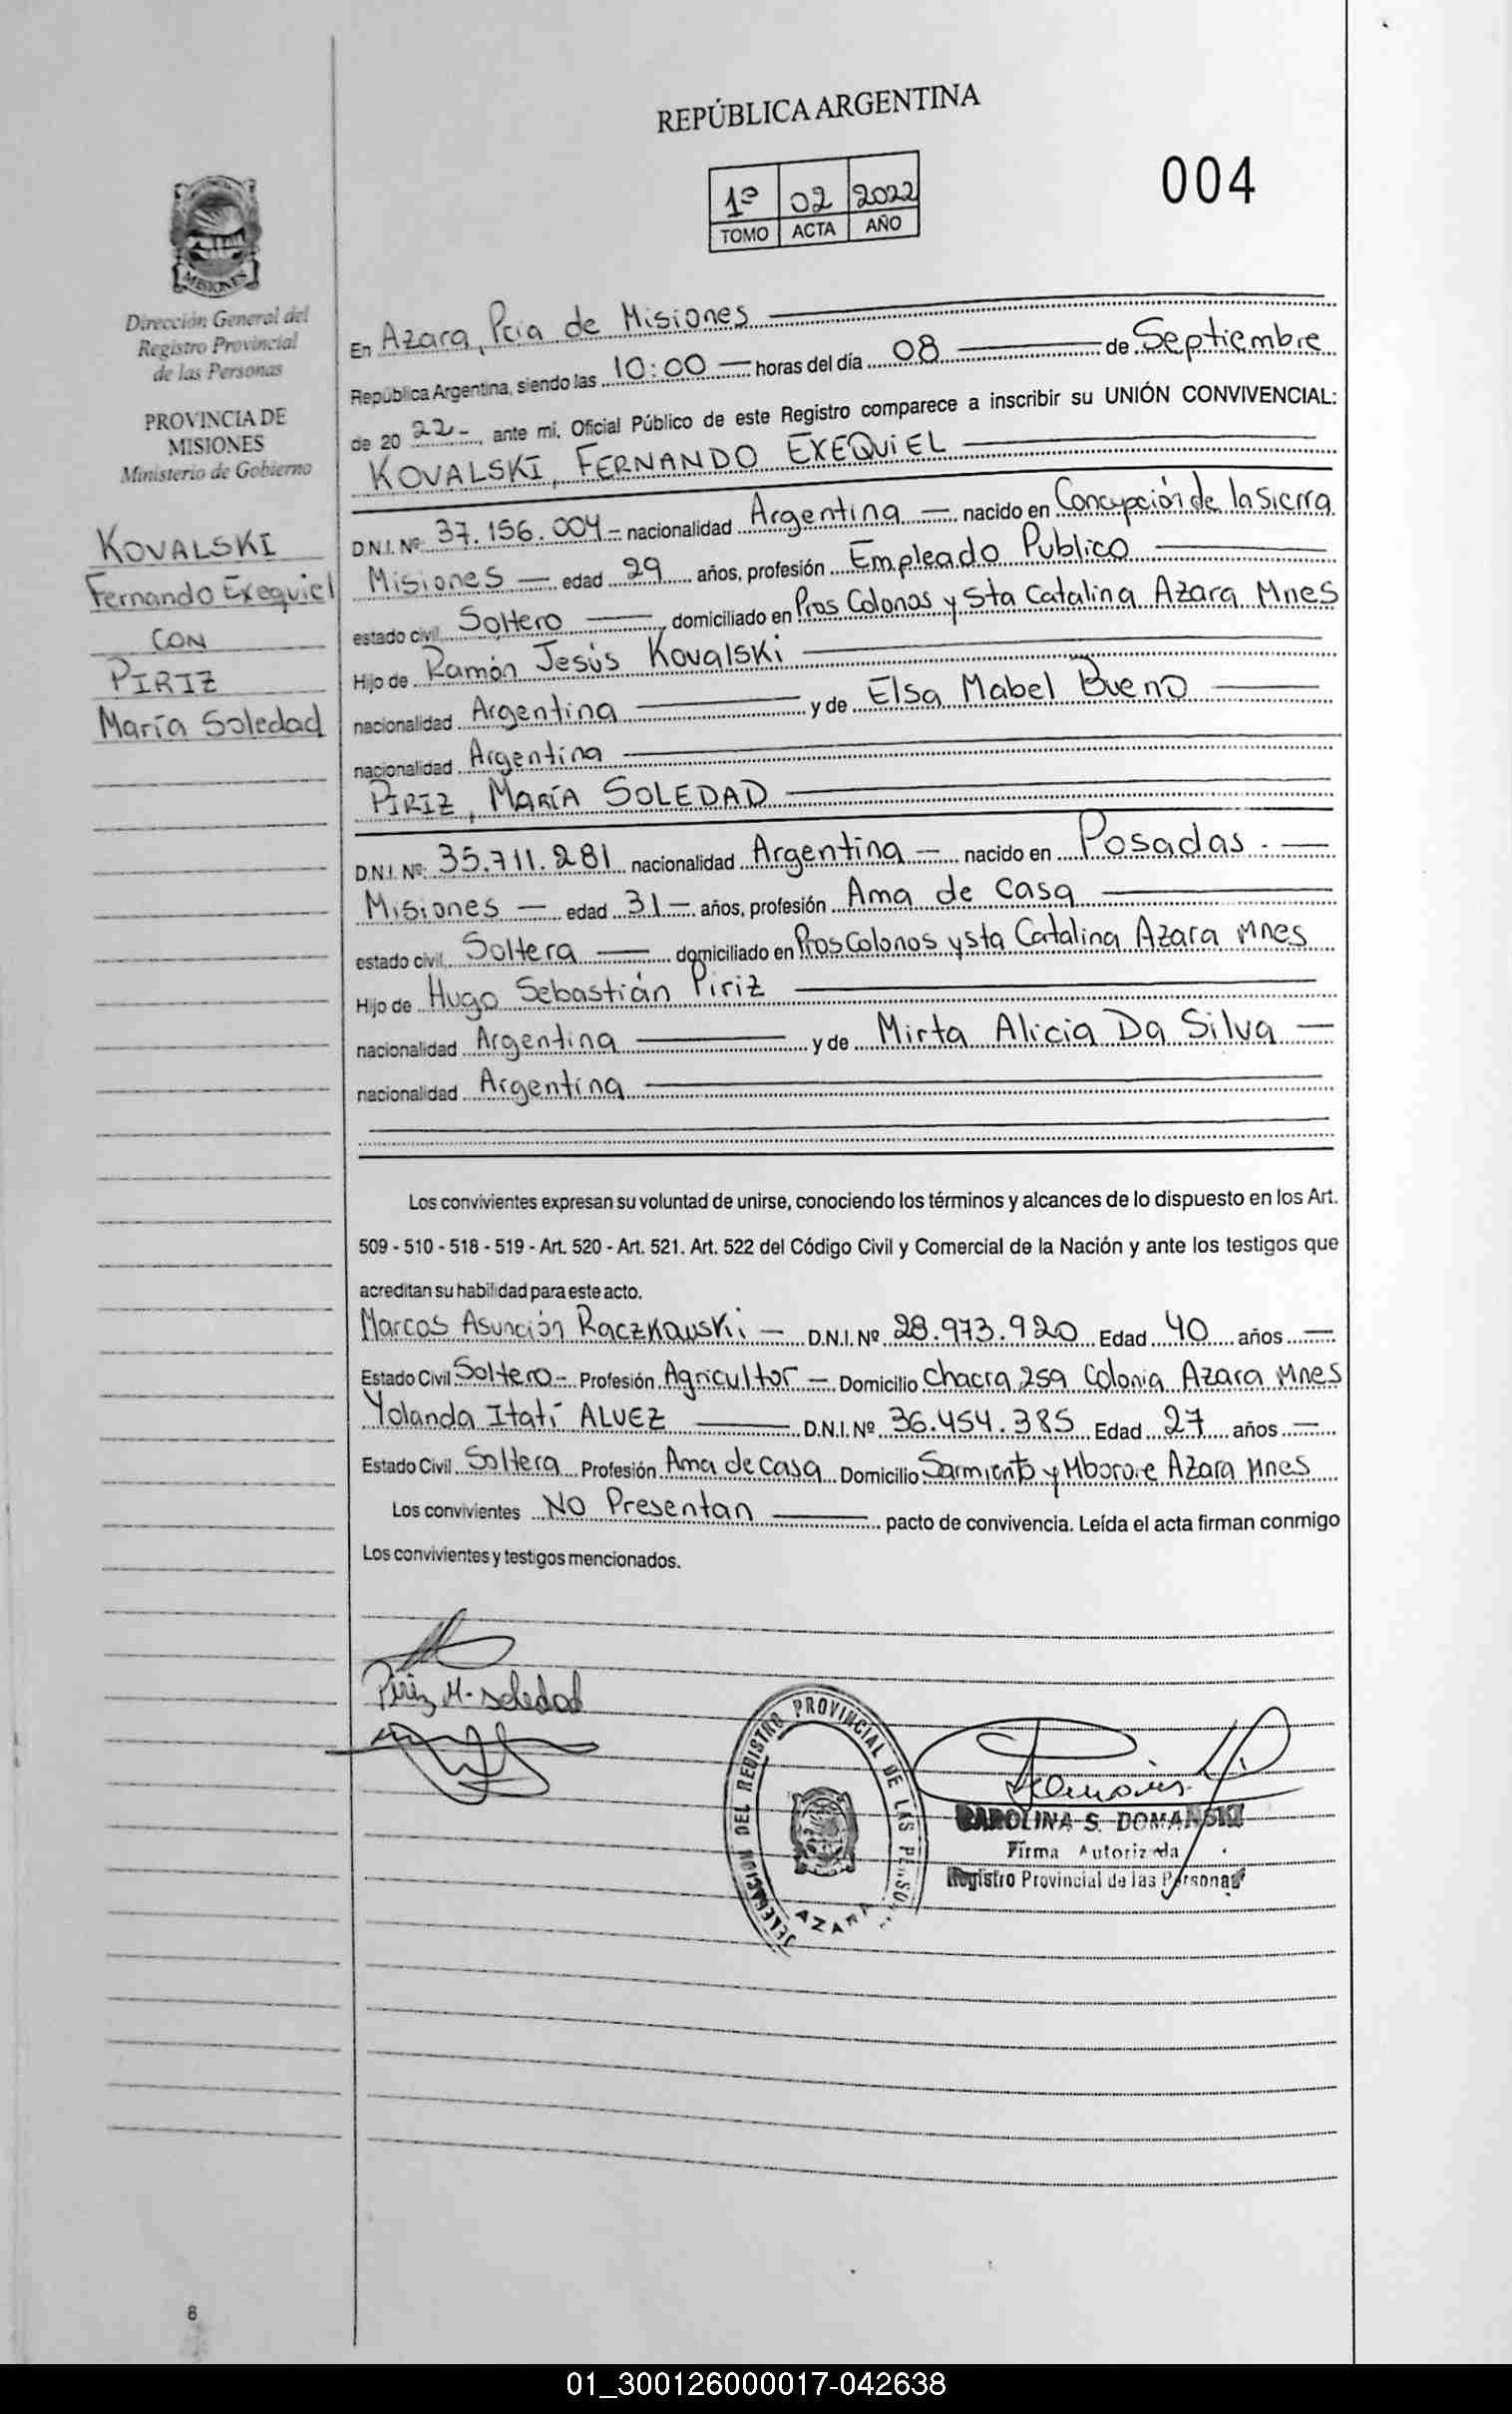 REPÚBLICA ARGENTINA
004
1º 02 2022
TOMO ACTA AÑO
MISIONES
Dirección General del
Registro Provincial
de las Personas
PROVINCIA DE
MISIONES
Ministerio de Gobierno
KOVALSKI
Fernando Exequiel
CON
PIRIZ
María Soledad
En Azara, Pcia de Misiones
República Argentina, siendo las 10:00 horas del día 08 de Septiembre
de 20 22-, ante mí, Oficial Público de este Registro comparece a inscribir su UNIÓN CONVIVENCIAL:
KOVALSKI, FERNANDO EXEQUIEL
D.N.I. Nº 37.156.004- nacionalidad Argentina - nacido en Concepción de la Sierra
Misiones - edad 29 años, profesión Empleado Publico
estado civil Soltero domiciliado en Pros Colonos y Sta Catalina Azara Mnes
Hijo de Ramón Jesús Kovalski
nacionalidad Argentina y de Elsa Mabel Bueno
nacionalidad Argentina
PIRIZ, MARÍA SOLEDAD
D.N.I. Nº: 35.711.281 nacionalidad Argentina - nacido en Posadas. -
Misiones - edad 31 - años, profesión Ama de casa
estado civil Soltera domiciliado en Pros Colonos y sta Catalina Azara Mnes
Hijo de Hugo Sebastián Piriz
nacionalidad Argentina y de Mirta Alicia Da Silva -
nacionalidad Argentina
Los convivientes expresan su voluntad de unirse, conociendo los términos y alcances de lo dispuesto en los Art.
509 - 510 - 518 - 519 - Art. 520 - Art. 521. Art. 522 del Código Civil y Comercial de la Nación y ante los testigos que
acreditan su habilidad para este acto.
Marcos Asunción Raczkowski - D.N.I. Nº 28.973.920 Edad 40 años -
Estado Civil Soltero - Profesión Agricultor - Domicilio Chacra 259 Colonia Azara Mnes
Yolanda Itatí ALVEZ D.N.I. Nº 36.454.385 Edad 27 años -
Estado Civil Soltera Profesión Ama de casa Domicilio Sarmiento y Mborore Azara Mnes
Los convivientes NO Presentan pacto de convivencia. Leída el acta firman conmigo
Los convivientes y testigos mencionados.
Piriz M. Soledad
DELEGACION DEL REGISTRO PROVINCIAL DE LAS PERSO
AZARA
CAROLINA S. DOMANSKI
Firma Autorizada
Registro Provincial de las Personas
8
01_300126000017-042638